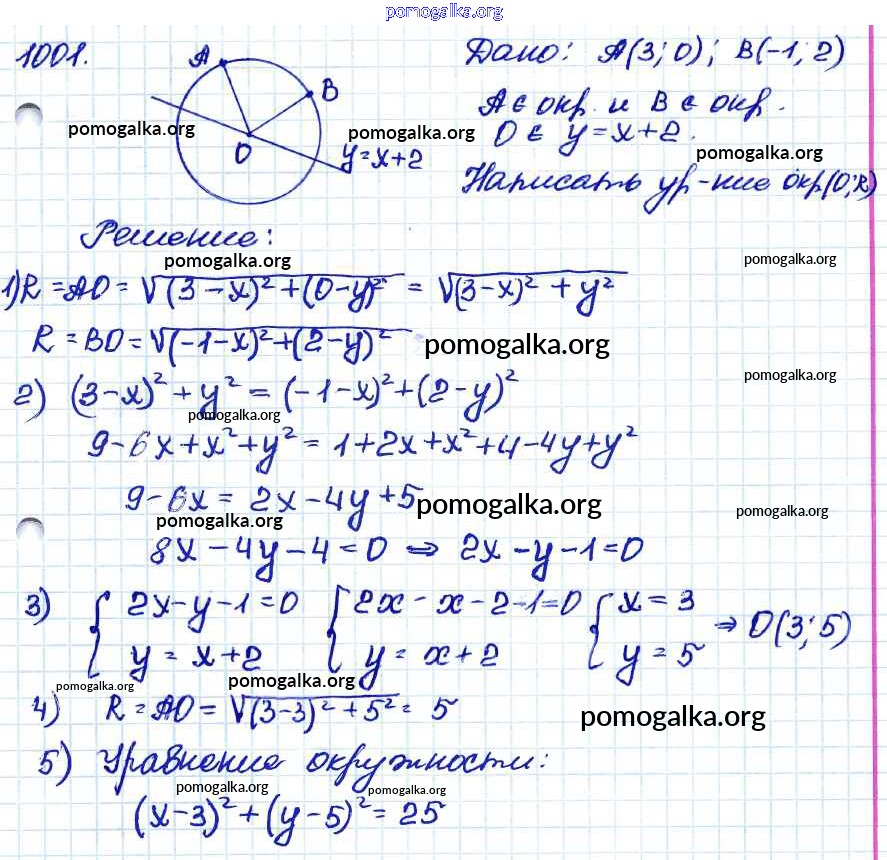 pomogalka.org
1001.
A
B
O
y=x+2
pomogalka.org
pomogalka.org
Дано: A(3; 0); B(-1; 2)
A ∈ окр. и B ∈ окр.
O ∈ y = x+2.
pomogalka.org
Написать ур-ние окр(O; R)
Решение:
pomogalka.org
pomogalka.org
1) R = AO = √(3-x)² + (0-y)² = √(3-x)² + y²
R = BO = √(-1-x)² + (2-y)²
pomogalka.org
pomogalka.org
2) (3-x)² + y² = (-1-x)² + (2-y)²
pomogalka.org
9-6x+x²+y² = 1+2x+x²+4-4y+y²
9-6x = 2x-4y+5
pomogalka.org
pomogalka.org
pomogalka.org
8x-4y-4=0 ⇒ 2x-y-1=0
3) { 2x-y-1=0 { 2x-x-2-1=0 { x=3 ⇒ O(3; 5)
y = x+2 y = x+2 y = 5
pomogalka.org
pomogalka.org
4) R = AO = √(3-3)² + 5² = 5
pomogalka.org
5) Уравнение окружности:
pomogalka.org
pomogalka.org
(x-3)² + (y-5)² = 25